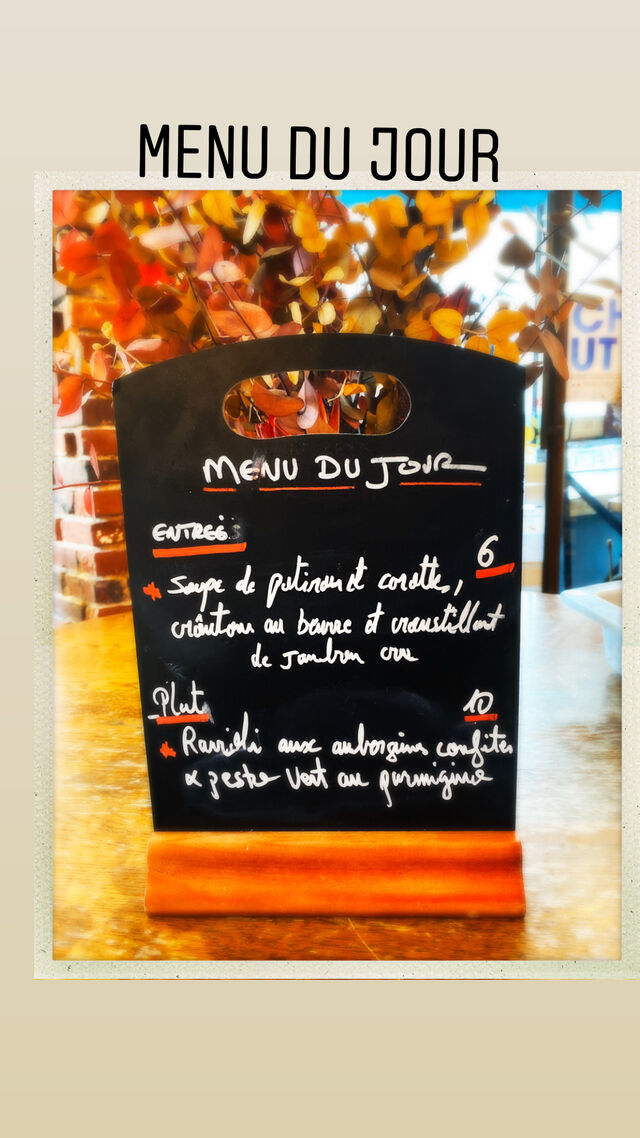 MENU DU JOUR
CH
UT
MENU DU JOUR
ENTRÉES
6
* Soupe de potiron et carottes,
croûtons au beurre et croustillant
de Jambon cru
Plat
10
* Ravioli aux aubergines confites
& pesto vert au parmigiano